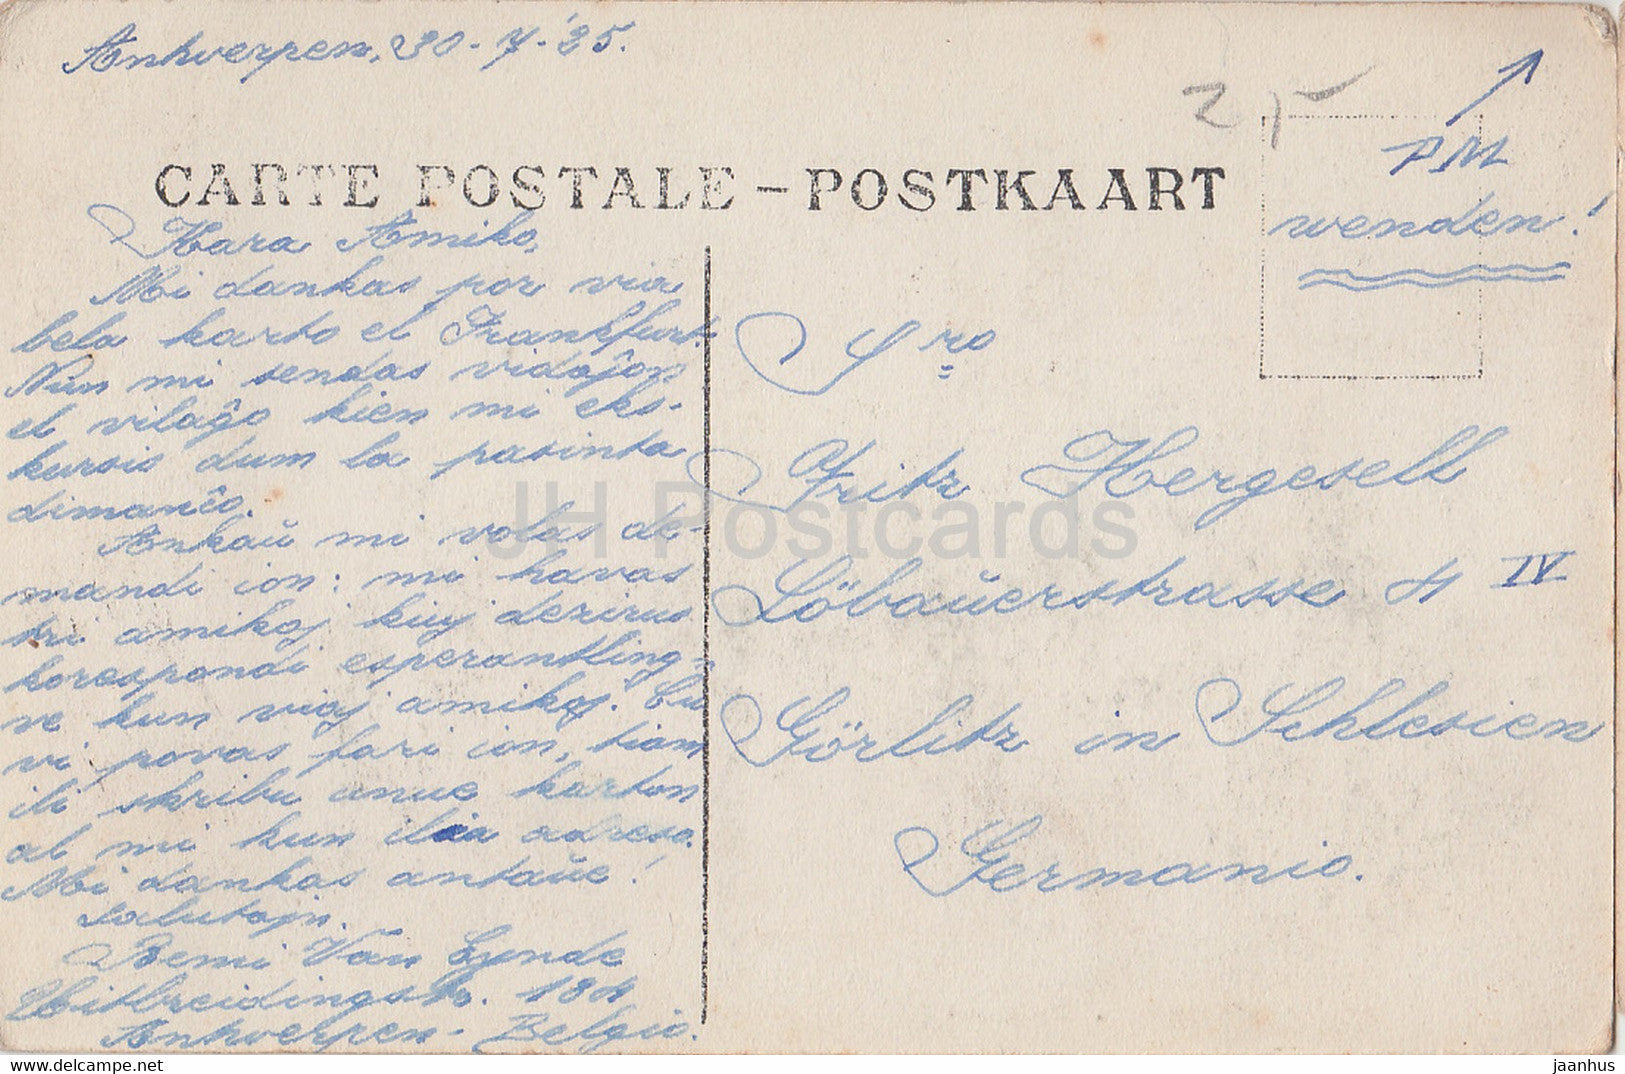 Anhverpen, 30-7-'25.
2,-
PM
wenden!
CARTE POSTALE – POSTKAART
Kara Amiko,
Mi dankas por via
bela karto el Frankfurt.
Nun mi sendas vidaĵon
el vilaĝo kien mi eks-
kursis dum la pasinta
dimanĉo.
Ankaŭ mi volas de-
mandi ion: mi havas
tri amikoj kiuj dezirus
korespondi esperantling-
ve kun viaj amikoj. Ĉu
vi povas fari ion, tiam
ili skribu unue karton
al mi kun ilia adreso.
Mi dankas antaŭe!
Salutojn.
Remi Van Eynde
Uitbreidingstr.
Anhverpen - Belgio.
Sro
Fritz Hergesell
Löbaŭerstrasse 4 IV
Görlitz in Schlesien
Germanio.
JH Postcards
https://www.hippostcard.com
jaanhus